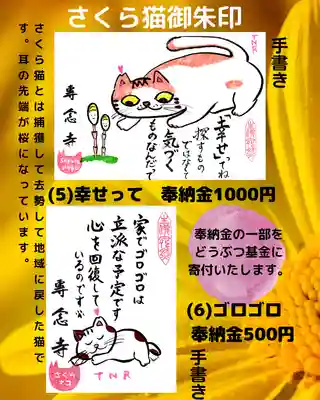 さくら猫御朱印
手書き
TNR
「幸せ」ってね
探すもの
ではなくて
気づく
ものなんだって
専念寺
さくらネコ
さくら猫とは捕獲して去勢して地域に戻した猫で
す。耳の先端が桜になっています。
(5)幸せって 奉納金1000円
奉納金の一部を
どうぶつ基金に
寄付いたします。
家でゴロゴロは
立派な予定です
心を回復して
いるのです
専念寺
さくらネコ
TNR
(6)ゴロゴロ
奉納金500円
手書き